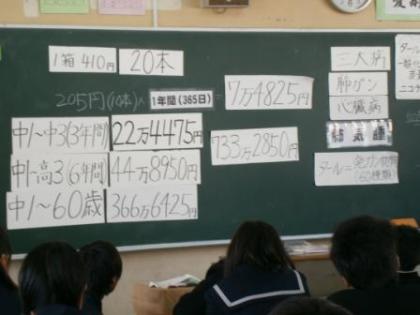 1箱 410円
20本
205円(10本)
1年間(365日)
7万4825円
中1~中3(3年間)
22万4475円
733万2850円
中1~高3(6年間)
44万8950円
中1~60歳
366万6425円
三大病
肺ガン
心臓病
タール=発ガン物質
(60種類)